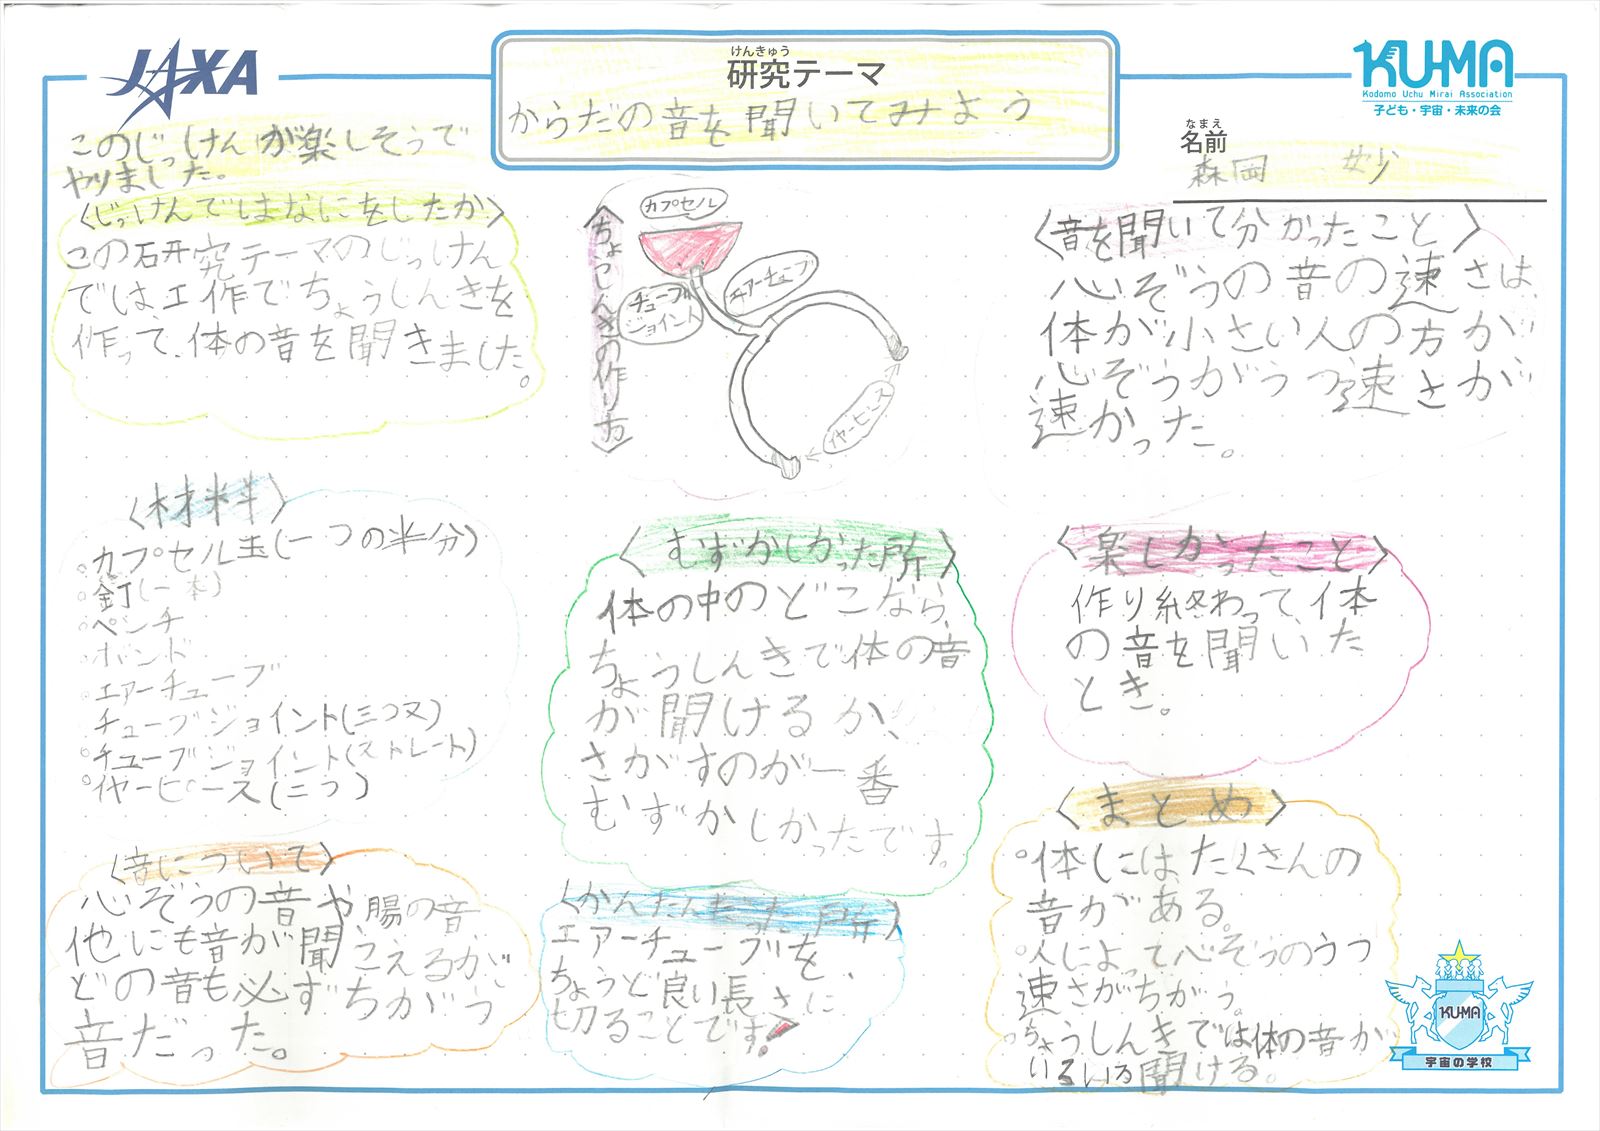 JAXA
けんきゅう
研究テーマ
からだの音を聞いてみよう
KU-MA
Kodomo Uchu Mirai Association
子ども・宇宙・未来の会
なまえ
名前
森岡 妙
このじっけんが楽しそうで
やりました。
〈じっけんではなにをしたか〉
この研究テーマのじっけん
では、工作でちょうしんきを
作って、体の音を聞きました。
〈材料〉
。カプセル玉(一つの半分)
。釘(一本)
。ペンチ
。ボンド
。エアーチューブ
。チューブジョイント(三つ又)
。チューブジョイント(ストレート)
。イヤーピース(二つ)
〈音について〉
心ぞうの音や腸の音
他にも音が聞こえるが、
どの音も必ずちがう
音だった。
〈ちょうしんきの作り方〉
カプセル
チューブ
ジョイント
エアーチューブ
イヤーピース
〈むずかしかった所〉
体の中のどこなら、
ちょうしんきで体の音
が聞けるか、
さがすのが一番
むずかしかったです。
〈かんたんだった所〉
エアーチューブを、
ちょうど良い長さに
切ることです!
〈音を聞いて分かったこと〉
心ぞうの音の速さは、
体が小さい人の方が
心ぞうがうつ速さが
速かった。
〈楽しかったこと〉
作り終わって、体
の音を聞いた
とき。
〈まとめ〉
。体にはたくさんの
音がある。
。人によって心ぞうのうつ
速さがちがう。
。ちょうしんきでは体の音が
いろいろ聞ける。
KU-MA
宇宙の学校